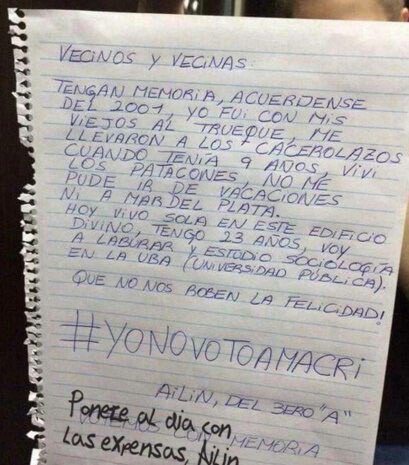 VECINOS Y VECINAS:
TENGAN MEMORIA, ACUERDENSE
DEL 2001, YO FUI CON MIS
VIEJOS AL TRUEQUE, ME
LLEVARON A LOS CACEROLAZOS
CUANDO TENIA 9 AÑOS, VIVI
LOS PATACONES, NO ME
PUDE IR DE VACACIONES
NI A MAR DEL PLATA.
HOY VIVO SOLA EN ESTE EDIFICIO
DIVINO, TENGO 23 AÑOS, VOY
A LABURAR Y ESTUDIO SOCIOLOGÍA
EN LA UBA (UNIVERSIDAD PÚBLICA).
QUE NO NOS ROBEN LA FELICIDAD!
#YONOVOTOAMACRI
AiLiN, DEL 3ERO "A"
VOTEMOS CON MEMORIA
Ponete al dia con
las expensas, Ailin